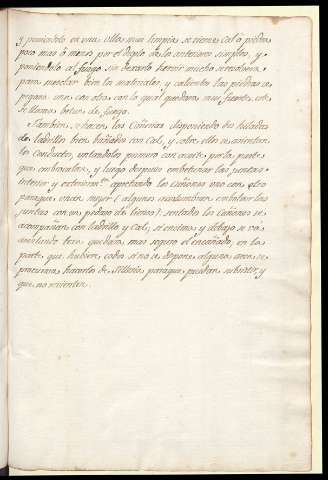 y poniendolo en una olla mui limpia se tiene cal o piedra
poco mas o menos por el de lo anteriores simples, y
poniendolo al fuego sin dexarlo hervir mucho se
para mezclar bien los materiales, y calientes las piedras se
pegan una con otra con lo qual quedaran mui fuerte, este
se llama betun de fuego.
Tambien se hacen las Cañerias disponiendo dos hiladas
de ladrillos bien bañados con cal, y sobre ellos se asientan
los conductos, untandolos primero con aceite por la parte
que embocalan, y luego despues embetunar las juntas
interior y exteriorm.te apretando los cañones uno con otro
para que unan mejor (algunos acostumbran embolver las
juntas con un pedazo de lienzo); sentados los Cañones se
acompañan con ladrillo y cal, si encima y debajo se va
echando bien quedara mas seguro el encañado, en la
parte que hubiere codos si no se dispone alguna arca se
procurará hacerlos de Silleria para que puedan subsistir, y
que no rebienten.